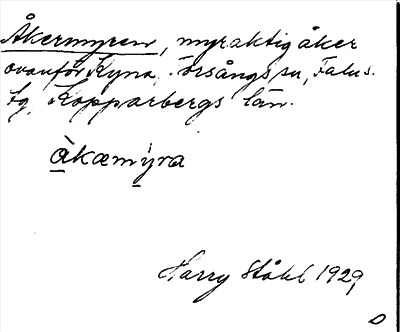 Åkermyren, myraktig åker
ovanför Kyna, Torsångs sn, Falus.
tg, Kopparbergs län.
àkæmýra
Harry Ståhl 1929